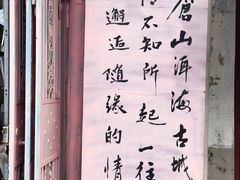 蒼山洱海古城
情不知所起一往
邂逅隨緣的情